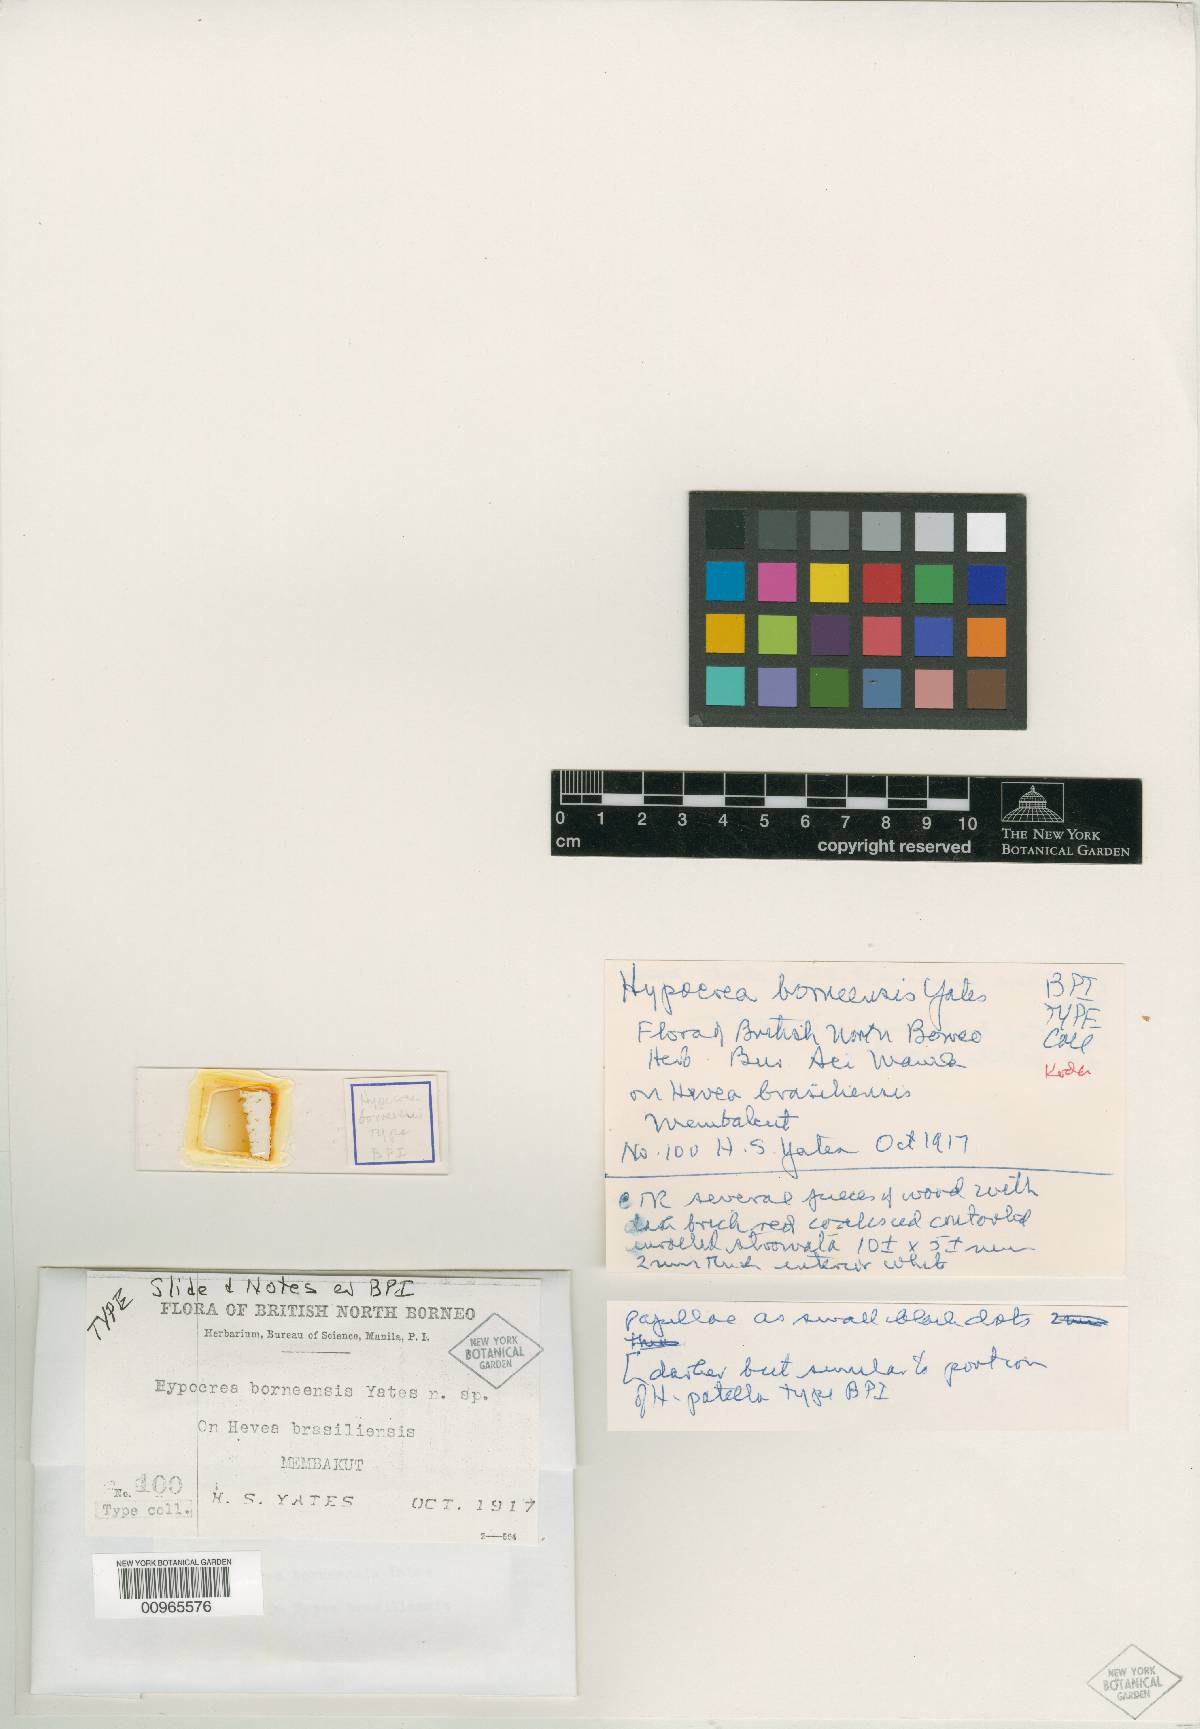 0 1 2 3 4 5 6 7 8 9 10
cm
copyright reserved
THE NEW YORK
BOTANICAL GARDEN
Hypocrea borneensis Yates
BPI
TYPE
Coll
Flora of British North Borneo
Herb. Bur. Sci Manila
on Hevea brasiliensis
Membakut
No. 100 H. S. Yates Oct 1917
several pieces of wood with
brick red contorted
stromata 10± x 5± mm
2 mm thick interior white
papillae as small black dots
[darker but similar to portion
of H. patella type BPI
Hypocrea
borneensis
type
BPI
TYPE
Slide & Notes ex BPI
FLORA OF BRITISH NORTH BORNEO
Herbarium, Bureau of Science, Manila, P. I.
NEW YORK
BOTANICAL
GARDEN
Hypocrea borneensis Yates n. sp.
On Hevea brasiliensis
MEMBAKUT
No. 100
Type coll.
H. S. YATES OCT. 1917
NEW YORK BOTANICAL GARDEN
00965576
NEW YORK
BOTANICAL
GARDEN